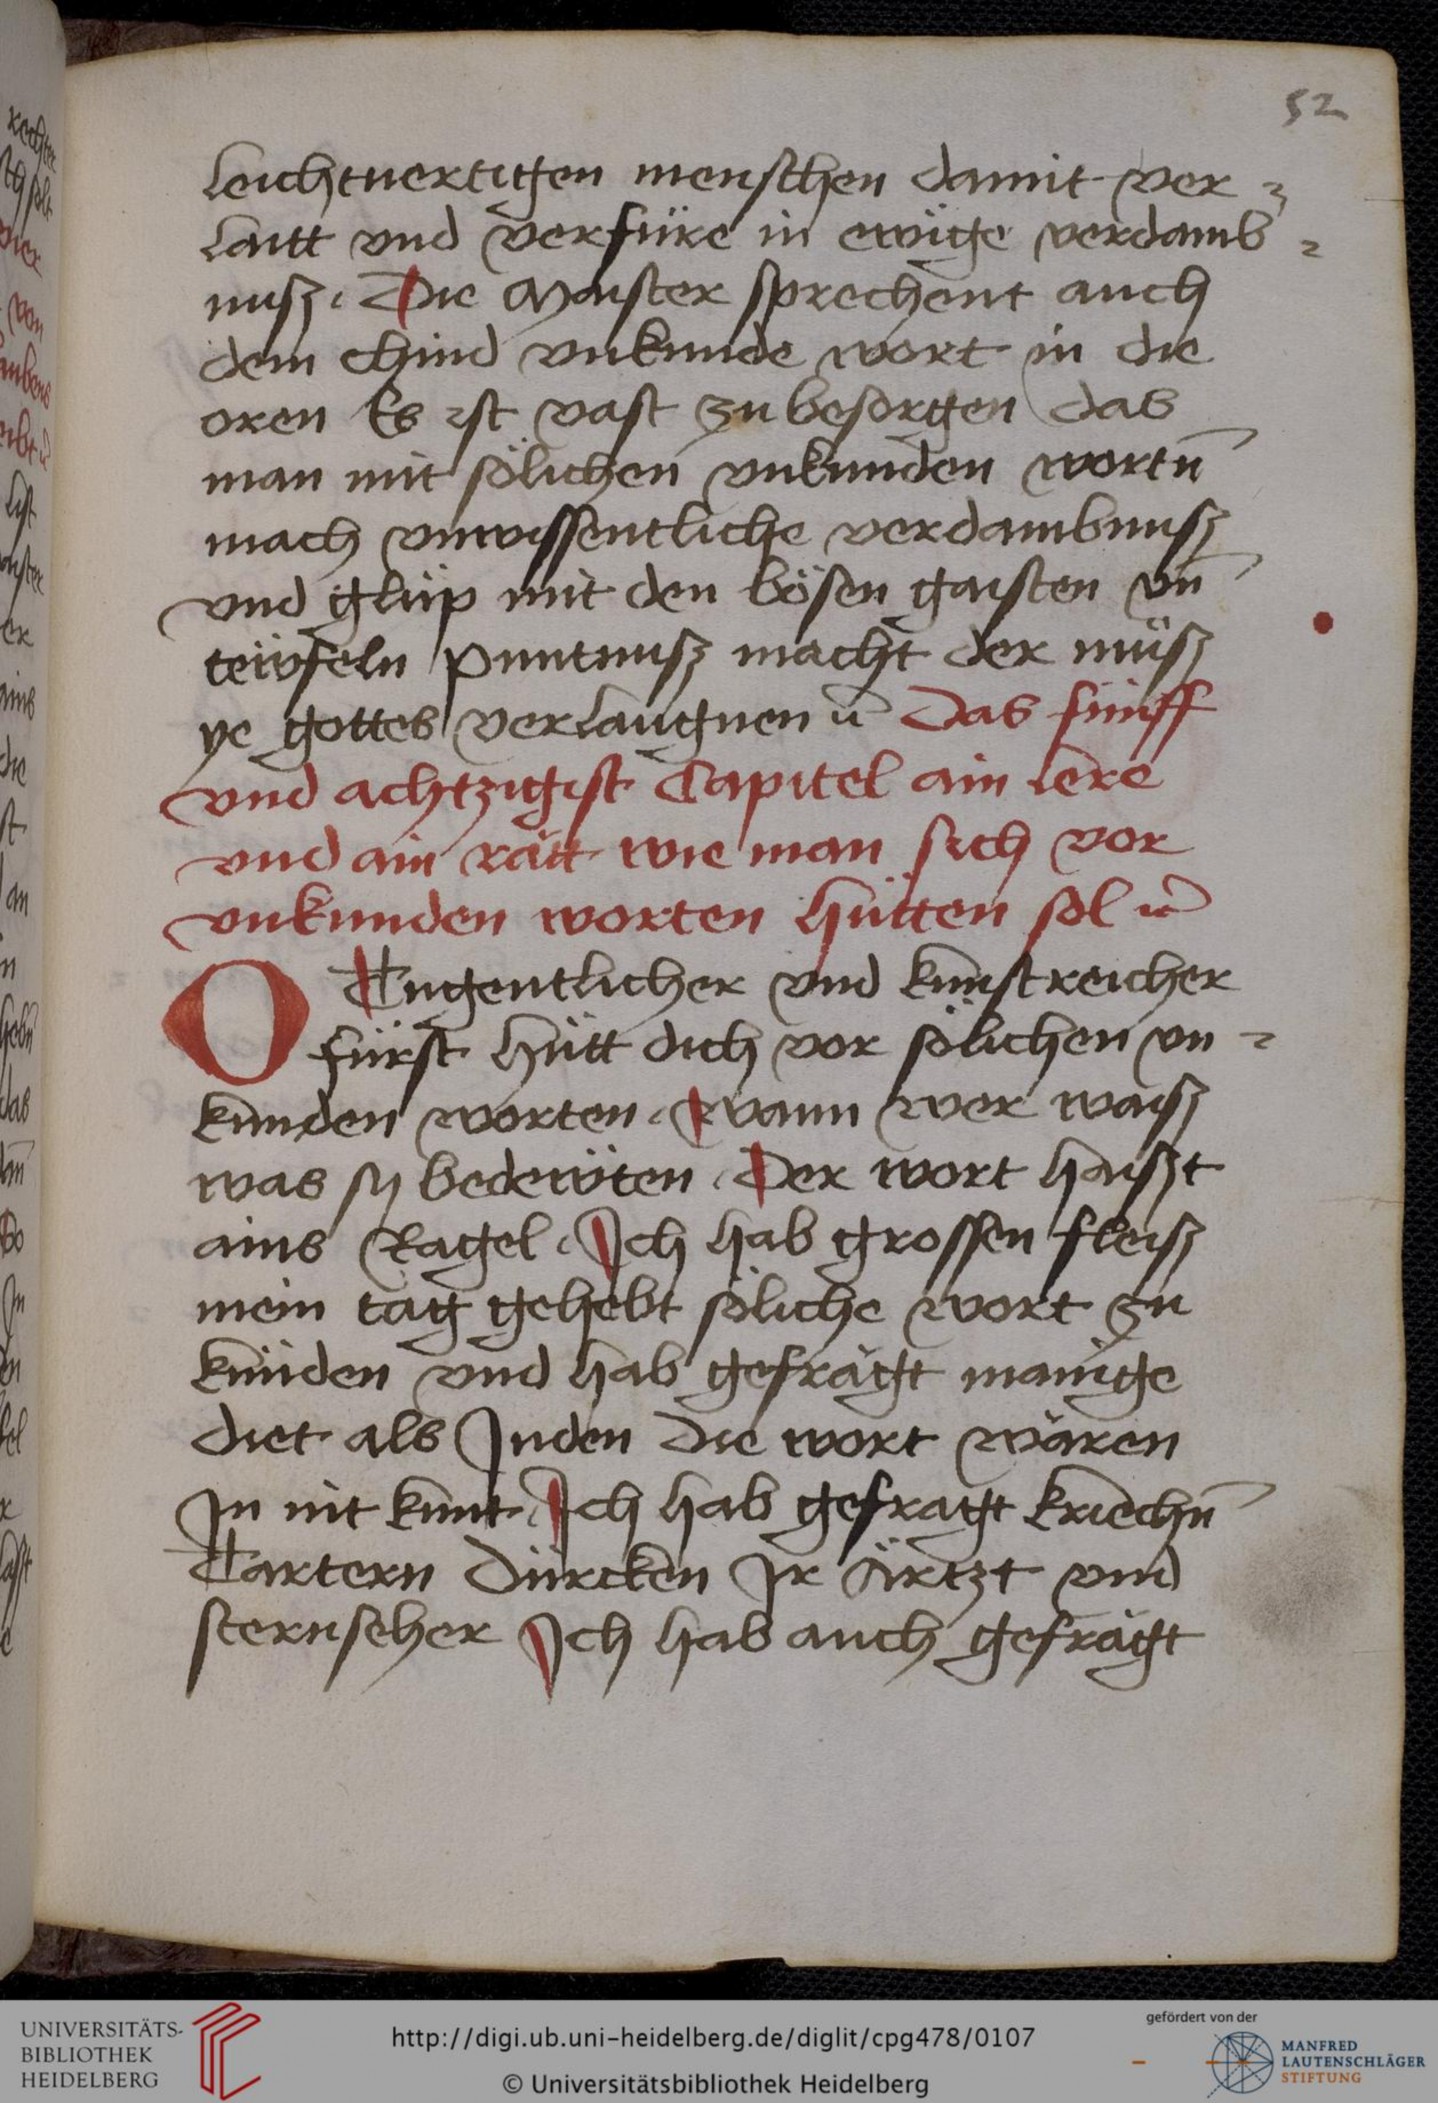 52
leichtuertigen menschen damit ver =
laitt vnd verfüre in ewige verdamb =
nusz. Die Maister sprechent auch
dem chind vnkunde wort in die
oren Es ist vast zu besorgen das
man mit sölichen vnkunden wortn̄
mach vnwissentliche verdambnusz
vnd glüp mit den bösen gaisten vn̄
teẅfeln puntnusz macht der müsz
ye gottes verlaugnen ⁊c̄ Das fünff
vnd achtzigist Capitel ain lere
vnd ain rätt wie man sich vor
vnkunden worten hütten sol ⁊c̄
O Tugentlicher vnd kunstreicher
fürst hütt dich vor sölichen vn =
kunden worten. wann wer waisz
was sy bedeẅten. Der wort haiszt
ains Ragel. Ich hab grossen fleisz
mein tag gehebt söliche wort zu
künden vnd hab gefrägt manige
diet als Juden die wort wären
In nit kunt. Ich hab gefragt kriechn̄
Tartern Dürcken Ir Ärtzt vnd
sternseher Ich hab auch gefrägt
UNIVERSITÄTS-
BIBLIOTHEK
HEIDELBERG
http://digi.ub.uni-heidelberg.de/diglit/cpg478/0107
© Universitätsbibliothek Heidelberg
gefördert von der
MANFRED
LAUTENSCHLÄGER
STIFTUNG